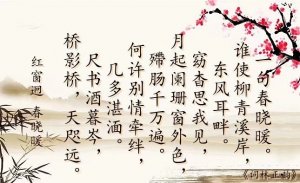 一的春晓暖。
谁使柳青溪岸,
东风耳畔。
窈杳思我见,
月起阑珊窗外色,
滯肠千万遍。
何许别情牵绊,
几多湛湎。
尺书酒暮岑,
桥影桥,天咫远。
红窗迥 春晓暖
《词林正韵》